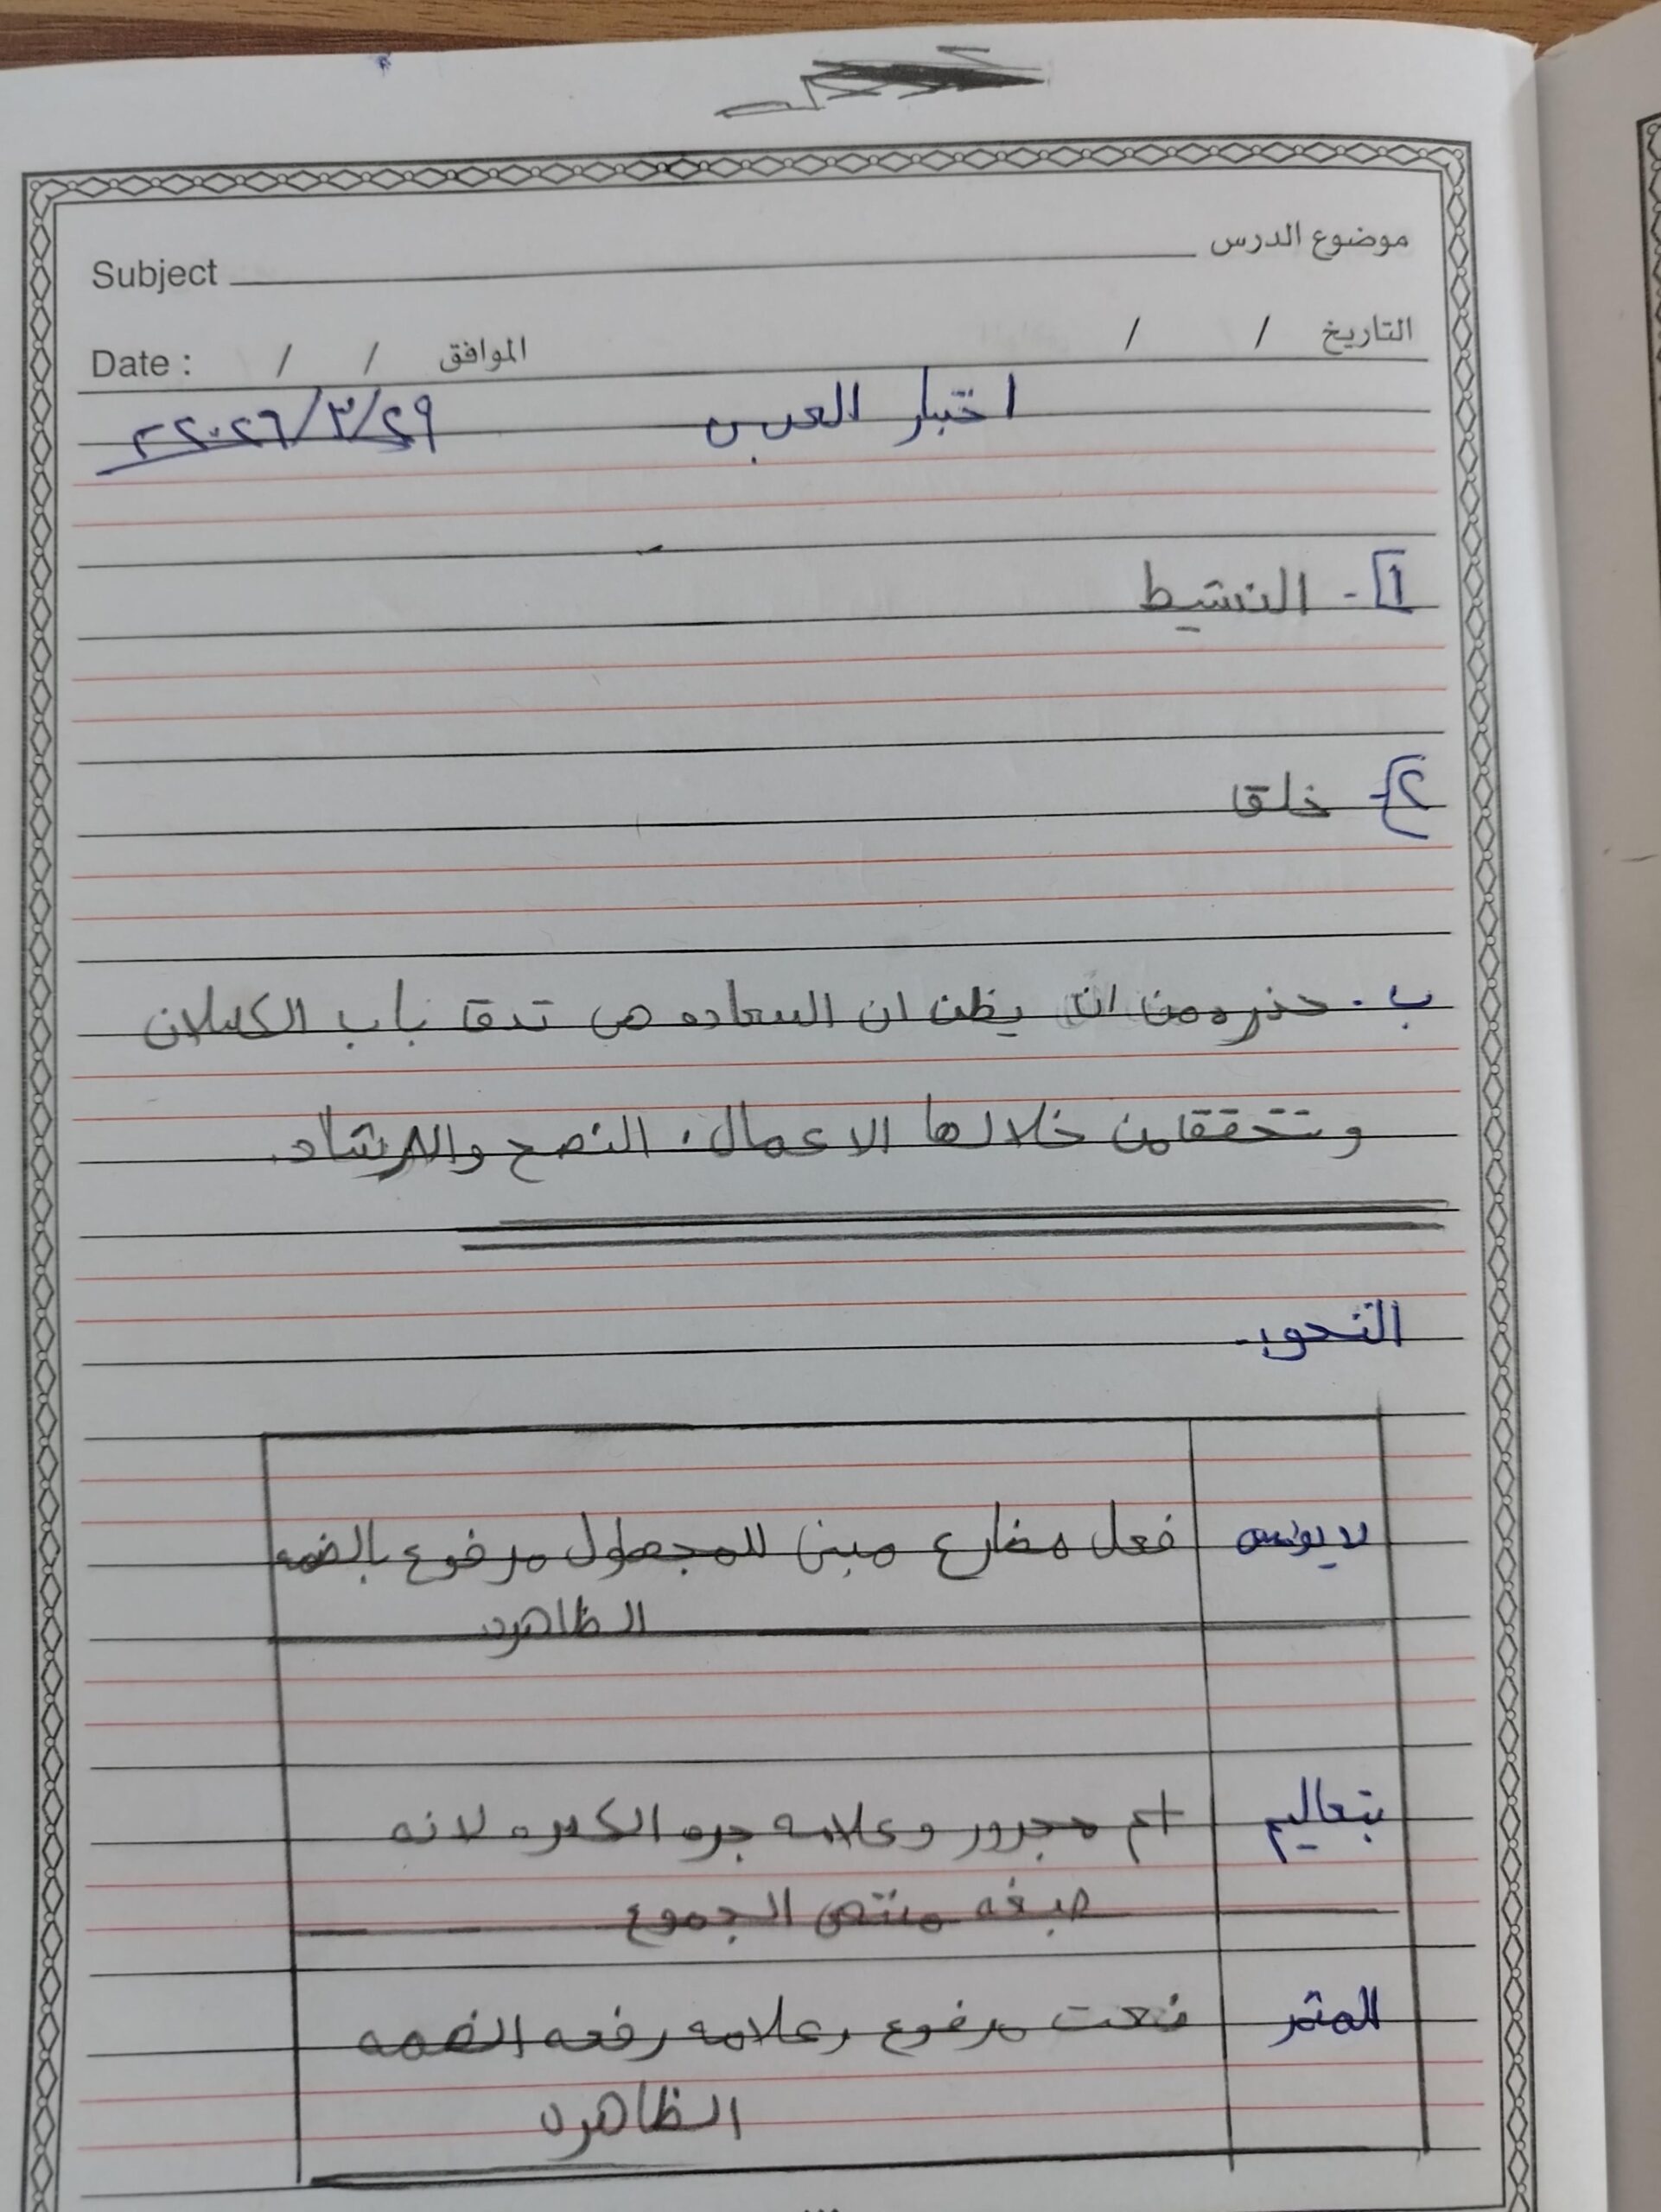 موضوع الدرس Subject
التاريخ / / الموافق / / Date :
اختبار العربي ٢٠٢٦/٣/٢٩
١- النشيط
٢- خلقا
ب. حذره من ان يظن ان السعاده هي تدق باب الكسلان
وتتحقق من خلالها الاعمال، النصح والارشاد.
النحو.
لا يوئس فعل مضارع مبني للمجهول مرفوع بالضمه
الظاهره
بتعاليم اسم مجرور وعلامه جره الكسره لانه
صيغه منتهى الجموع
المثمر نعت مرفوع وعلامه رفعه الضمه
الظاهره